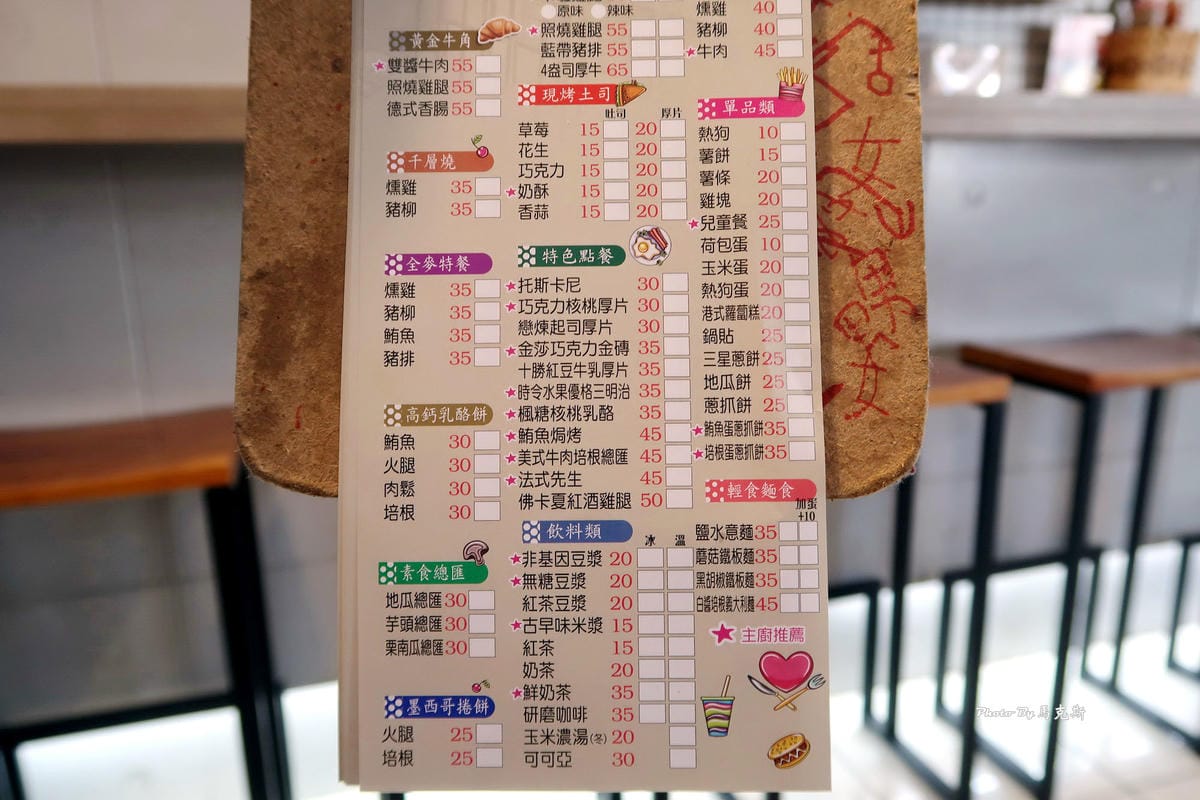 黃金牛角
★雙醬牛肉 55
照燒雞腿 55
德式香腸 55
千層燒
燻雞 35
豬柳 35
全麥特餐
燻雞 35
豬柳 35
鮪魚 35
豬排 35
高鈣乳酪餅
鮪魚 30
火腿 30
肉鬆 30
培根 30
素食總匯
地瓜總匯 30
芋頭總匯 30
栗南瓜總匯 30
墨西哥捲餅
火腿 25
培根 25
原味 辣味
★照燒雞腿 55
藍帶豬排 55
4盎司厚牛 65
現烤土司
吐司 厚片
草莓 15 20
花生 15 20
巧克力 15 20
★奶酥 15 20
香蒜 15 20
特色點餐
★托斯卡尼 30
★巧克力核桃厚片 30
戀煉起司厚片 30
★金莎巧克力金磚 35
十勝紅豆牛乳厚片 35
★時令水果優格三明治 35
★楓糖核桃乳酪 35
★鮪魚焗烤 45
★美式牛肉培根總匯 45
★法式先生 45
佛卡夏紅酒雞腿 50
飲料類
冰 溫
★非基因豆漿 20
★無糖豆漿 20
紅茶豆漿 20
★古早味米漿 15
紅茶 15
奶茶 20
★鮮奶茶 35
研磨咖啡 35
玉米濃湯(冬) 20
可可亞 30
燻雞 40
豬柳 40
★牛肉 45
單品類
熱狗 10
薯餅 15
薯條 20
雞塊 20
★兒童餐 25
荷包蛋 10
玉米蛋 20
熱狗蛋 20
港式蘿蔔糕 20
鍋貼 25
三星蔥餅 25
地瓜餅 25
蔥抓餅 25
★鮪魚蛋蔥抓餅 35
★培根蛋蔥抓餅 35
輕食麵食
加蛋
+10
鹽水意麵 35
蘑菇鐵板麵 35
黑胡椒鐵板麵 35
白醬培根義大利麵 45
★主廚推薦
Photo By 馬克斯